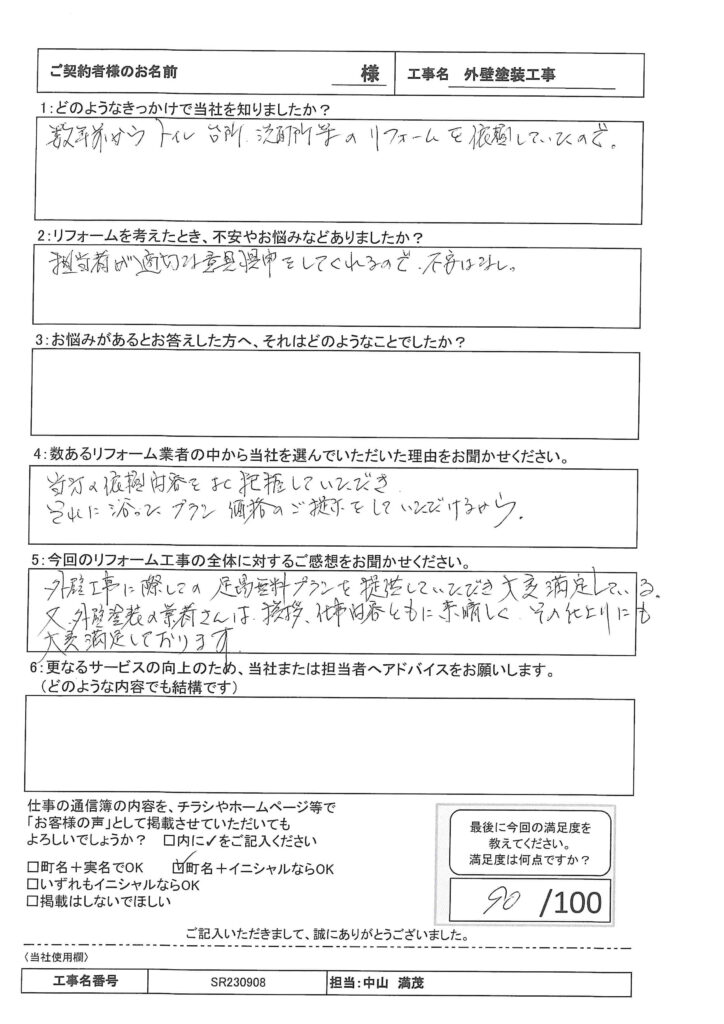 ご契約者様のお名前 様 工事名 外壁塗装工事
1:どのようなきっかけで当社を知りましたか?
数年前から トイレ 台所、洗面所等の リフォームを依頼していたので。
2:リフォームを考えたとき、不安やお悩みなどありましたか?
担当者が適切な意見具申をしてくれるので、不安はなし。
3:お悩みがあるとお答えした方へ、それはどのようなことでしたか?
4:数あるリフォーム業者の中から当社を選んでいただいた理由をお聞かせください。
当方の依頼内容をよく把握していただき
それに沿ったプラン 価格のご提示をしていただけるから。
5:今回のリフォーム工事の全体に対するご感想をお聞かせください。
外壁工事に際しての 足場無料プランを提供していただき 大変満足している。
又、外壁塗装の業者さんは、挨拶、仕事内容ともに素晴しく、その仕上りにも
大変満足しております。
6:更なるサービスの向上のため、当社または担当者へアドバイスをお願いします。
(どのような内容でも結構です)
仕事の通信簿の内容を、チラシやホームページ等で
「お客様の声」として掲載させていただいても
よろしいでしょうか? □内に✓をご記入ください
□町名+実名でOK ☑町名+イニシャルならOK
□いずれもイニシャルならOK
□掲載はしないでほしい
最後に今回の満足度を
教えてください。
満足度は何点ですか?
90 /100
ご記入いただきまして、誠にありがとうございました。
〈当社使用欄〉
工事名番号 SR230908 担当:中山 満茂